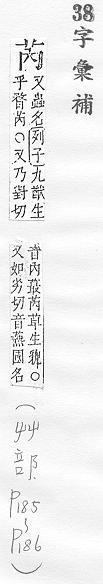 38 字彙補
芮 又蟲名列子九猷生
乎瞀芮○又乃對切
音內發芮草生貌○
又如劣切音爇國名
(艸部 P185~P186)